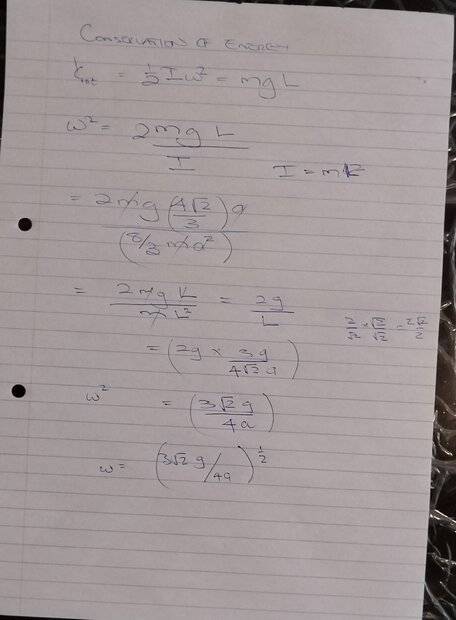 CONSERVATION OF ENERGY
K_rot = 1/2 I ω² = mg L
ω² = 2mg L / I
I = m
= 2mg (4√2/3) a / (8/3 m a²)
= 2mg L / m L² = 2g / L
2/√2 × √2/√2 = 2√2/2
= (2g × 3g / 4√2 a)
ω² = (3√2 g / 4a)
ω = (3√2 g / 4a)^1/2